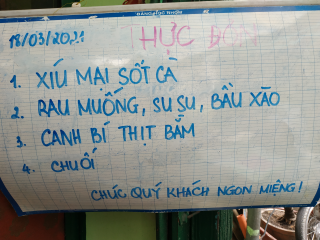 18/03/2021
THỰC ĐƠN
1. XÍU MẠI SỐT CÀ
2. RAU MUỐNG, SU SU, BẦU XÀO
3. CANH BÍ THỊT BẰM
4. CHUỐI
CHÚC QUÝ KHÁCH NGON MIỆNG!